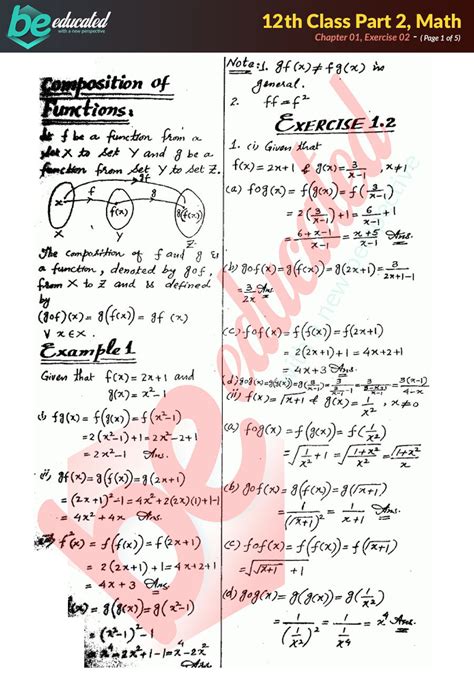 be educated
with a new perspective
12th Class Part 2, Math
Chapter 01, Exercise 02 - ( Page 1 of 5)
Composition of
Functions:
f be a function from a
set X to set Y and g be a
function from set Y to set Z.
gf
f g
x f(x) g(f(x))
X Y Z
The composition of f and g is
a function, denoted by gof,
from X to Z and is defined
by
(gof)(x) = g(f(x)) = gf (x)
∀ x∈X.
Example 1
Given that f(x) = 2x+1 and
g(x) = x²-1
(i) fg(x) = f(g(x)) = f(x²-1)
= 2(x²-1)+1 = 2x²-2+1
= 2x²-1 Ans.
(ii) gf(x) = g(f(x)) = g(2x+1)
= (2x+1)²-1 = 4x²+2(2x)(1)+1-1
= 4x²+4x Ans.
f²(x) = f(f(x)) = f(2x+1)
= 2(2x+1)+1 = 4x+2+1
= 4x+3 Ans
(x) = g(g(x)) = g(x²-1)
= (x²-1)²-1
= x⁴-2x²+1-1 = x⁴-2x²
Ans
Note: 1. gf(x) ≠ fg(x) in
general.
2. ff = f²
EXERCISE 1.2
1. (i) Given that
f(x) = 2x+1 & g(x) = 3/(x-1), x≠1
(a) fog(x) = f(g(x)) = f(3/(x-1))
= 2(3/(x-1))+1 = 6/(x-1)+1
= (6+x-1)/(x-1) = (x+5)/(x-1) Ans.
(b) gof(x) = g(f(x)) = g(2x+1) = 3/(2x+1-1)
= 3/2x Ans
(c) fof(x) = f(f(x)) = f(2x+1)
= 2(2x+1)+1 = 4x+2+1
= 4x+3 Ans.
(d) gog(x) = g(g(x)) = g(3/(x-1)) = 3/(3/(x-1)-1) = 3/((3-x+1)/(x-1)) = 3(x-1)/(4-x)
(ii) f(x) = √(x+1) & g(x) = 1/x², x≠0
(a) fog(x) = f(g(x)) = f(1/x²)
= √(1/x²+1) = √((1+x²)/x²) = √(1+x²)/x
(b) gof(x) = g(f(x)) = g(√(x+1))
= 1/(√(x+1))² = 1/(x+1) Ans.
(c) fof(x) = f(f(x)) = f(√(x+1))
= √(√(x+1)+1) Ans.
(d) gog(x) = g(g(x)) = g(1/x²)
= 1/(1/x²)² = 1/(1/x⁴) = x⁴ Ans.
be educated